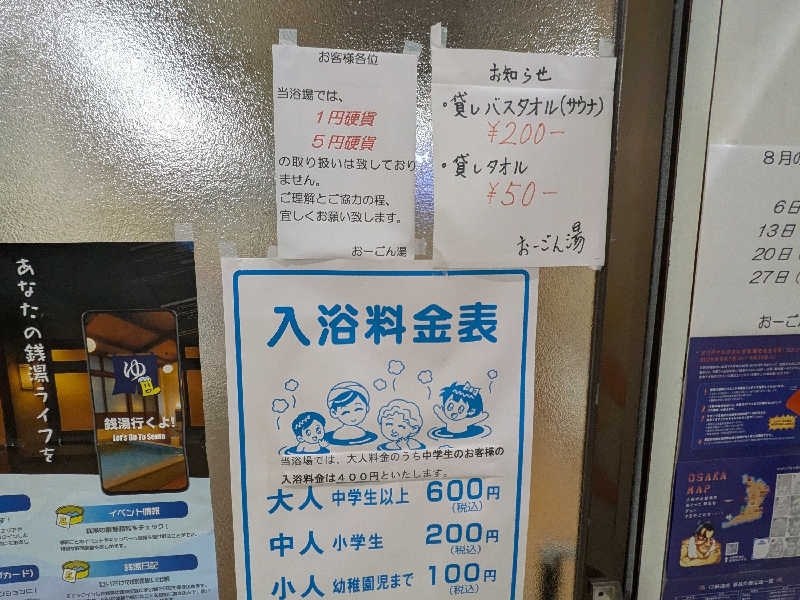 お客様各位
当浴場では、
1円硬貨
5円硬貨
の取り扱いは致しており
ません。
ご理解とご協力の程、
宜しくお願い致します。
おーごん湯
お知らせ
・貸しバスタオル(サウナ)
¥200-
・貸しタオル
¥50-
おーごん湯
入浴料金表
当浴場では、大人料金のうち中学生のお客様の
入浴料金は400円といたします。
大人 中学生以上 600円
(税込)
中人 小学生 200円
(税込)
小人 幼稚園児まで 100円
(税込)
あなたの銭湯ライフを
ゆ
銭湯行くよ!
Let's Go To Sento
イベント情報
銭湯の最新情報をチェック!
銭湯日記
カード)
8月の
6日
13日
20日(
27日(
おーご
OSAKA
MAP